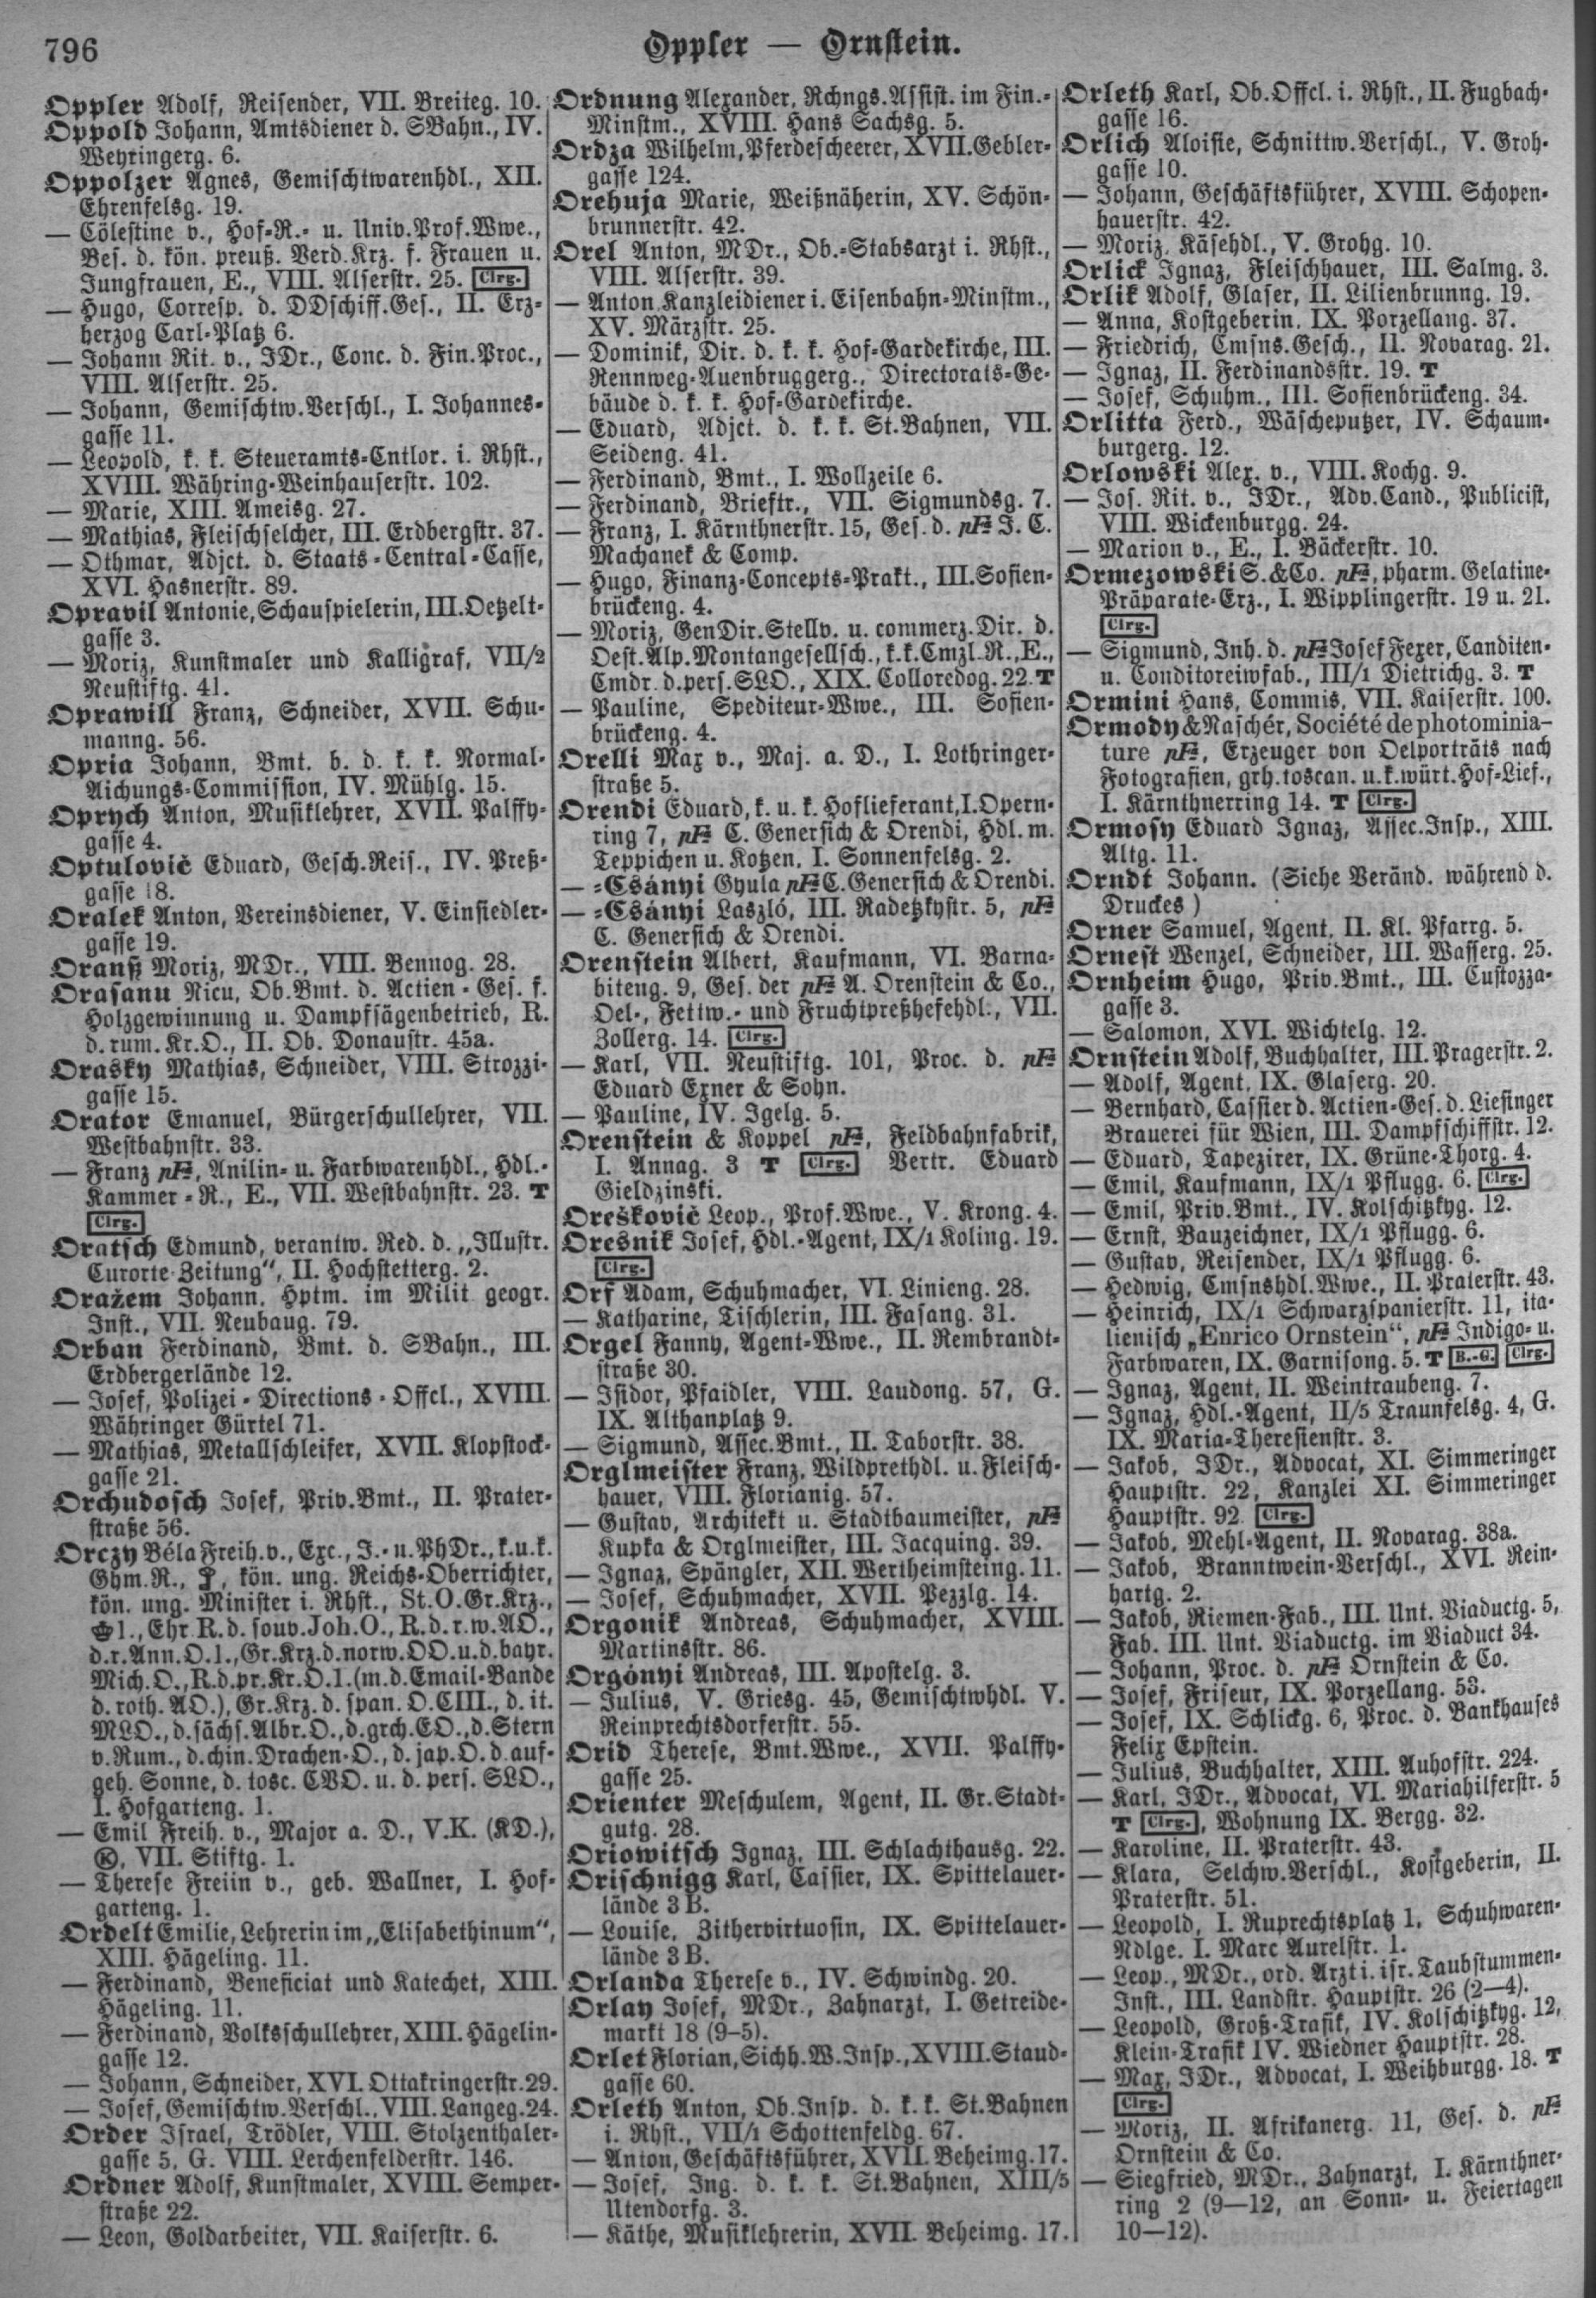 796
Oppler — Ornstein.
Oppler Adolf, Reisender, VII. Breiteg. 10.
Oppold Johann, Amtsdiener d. SBahn., IV.
Weyringerg. 6.
Oppolzer Agnes, Gemischtwarenhdl., XII.
Ehrenfelsg. 19.
— Cölestine v., Hof-R.- u. Univ.Prof.Wwe.,
Bes. d. kön. preuß. Verd.Krz. f. Frauen u.
Jungfrauen, E., VIII. Alserstr. 25. Clrg.
— Hugo, Corresp. d. DDschiff.Ges., II. Erz-
herzog Carl-Platz 6.
— Johann Rit. v., JDr., Conc. d. Fin.Proc.,
VIII. Alserstr. 25.
— Johann, Gemischtw.Verschl., I. Johannes-
gasse 11.
— Leopold, k. k. Steueramts-Cntlor. i. Rhst.,
XVIII. Währing-Weinhauserstr. 102.
— Marie, XIII. Ameisg. 27.
— Mathias, Fleischselcher, III. Erdbergstr. 37.
— Othmar, Adjct. d. Staats-Central-Casse,
XVI. Hasnerstr. 89.
Opravil Antonie, Schauspielerin, III. Oetzelt-
gasse 3.
— Moriz, Kunstmaler und Kalligraf, VII/2
Neustiftg. 41.
Oprawill Franz, Schneider, XVII. Schu-
manng. 56.
Opria Johann, Bmt. b. d. k. k. Normal-
Aichungs-Commission, IV. Mühlg. 15.
Oprych Anton, Musiklehrer, XVII. Palffy-
gasse 4.
Optulovič Eduard, Gesch.Reis., IV. Preß-
gasse 18.
Oralek Anton, Vereinsdiener, V. Einsiedler-
gasse 19.
Oranß Moriz, MDr., VIII. Bennog. 28.
Orasanu Nicu, Ob.Bmt. d. Actien-Ges. f.
Holzgewinnung u. Dampfsägenbetrieb, R.
d. rum. Kr.O., II. Ob. Donaustr. 45a.
Orasky Mathias, Schneider, VIII. Strozzi-
gasse 15.
Orator Emanuel, Bürgerschullehrer, VII.
Westbahnstr. 33.
— Franz pFa, Anilin- u. Farbwarenhdl., Hdl.-
Kammer-R., E., VII. Westbahnstr. 23. T
Clrg.
Oratsch Edmund, verantw. Red. d. „Illustr.
Curorte-Zeitung“, II. Hochstetterg. 2.
Oražem Johann, Hptm. im Milit. geogr.
Inst., VII. Neubaug. 79.
Orban Ferdinand, Bmt. d. SBahn., III.
Erdbergerlände 12.
— Josef, Polizei-Directions-Offcl., XVIII.
Währinger Gürtel 71.
— Mathias, Metallschleifer, XVII. Klopstock-
gasse 21.
Orchudosch Josef, Priv.Bmt., II. Prater-
straße 56.
Orczy Béla Freih. v., Exc., J.- u. PhDr., k. u. k.
Ghm.R., kön. ung. Reichs-Oberrichter,
kön. ung. Minister i. Rhst., St.O.Gr.Krz.,
1., Ehr.R.d.souv.Joh.O., R.d.r.w.AO.,
d.r.Ann.O.1., Gr.Krz.d.norw.OO.u.d.bayr.
Mich.O., R.d.pr.Kr.O.1.(m.d.Email-Bande
d. roth. AO.), Gr.Krz. d. span. O.CIII., d. it.
MLO., d. sächs. Albr.O., d. grch. EO., d. Stern
v. Rum., d. chin. Drachen-O., d. jap. O. d. auf-
geh. Sonne, d. tosc. CVO. u. d. pers. SLO.,
I. Hofgarteng. 1.
— Emil Freih. v., Major a. D., V.K. (KD.),
Ⓚ, VII. Stiftg. 1.
— Therese Freiin v., geb. Wallner, I. Hof-
garteng. 1.
Ordelt Emilie, Lehrerin im „Elisabethinum“,
XIII. Hägeling. 11.
— Ferdinand, Beneficiat und Katechet, XIII.
Hägeling. 11.
— Ferdinand, Volksschullehrer, XIII. Hägelin-
gasse 12.
— Johann, Schneider, XVI. Ottakringerstr. 29.
— Josef, Gemischtw.Verschl., VIII. Langeg. 24.
Order Israel, Trödler, VIII. Stolzenthaler-
gasse 5, G. VIII. Lerchenfelderstr. 146.
Ordner Adolf, Kunstmaler, XVIII. Semper-
straße 22.
— Leon, Goldarbeiter, VII. Kaiserstr. 6.
Ordnung Alexander, Rchngs.Assist. im Fin.-
Minstm., XVIII. Hans Sachsg. 5.
Ordza Wilhelm, Pferdescheerer, XVII. Gebler-
gasse 124.
Orehuja Marie, Weißnäherin, XV. Schön-
brunnerstr. 42.
Orel Anton, MDr., Ob.-Stabsarzt i. Rhst.,
VIII. Alserstr. 39.
— Anton, Kanzleidiener i. Eisenbahn-Minstm.,
XV. Märzstr. 25.
— Dominik, Dir. d. k. k. Hof-Gardekirche, III.
Rennweg-Auenbruggerg., Directorats-Ge-
bäude d. k. k. Hof-Gardekirche.
— Eduard, Adjct. d. k. k. St.Bahnen, VII.
Seideng. 41.
— Ferdinand, Bmt., I. Wollzeile 6.
— Ferdinand, Brieftr., VII. Sigmundsg. 7.
— Franz, I. Kärnthnerstr. 15, Ges. d. pFa J. C.
Machanek & Comp.
— Hugo, Finanz-Concepts-Prakt., III. Sofien-
brückeng. 4.
— Moriz, GenDir.Stellv. u. commerz. Dir. d.
Oest. Alp. Montangesellsch., k. k. Cmzl.R., E.,
Cmdr. d. pers. SLO., XIX. Colloredog. 22. T
— Pauline, Spediteur-Wwe., III. Sofien-
brückeng. 4.
Orelli Max v., Maj. a. D., I. Lothringer-
straße 5.
Orendi Eduard, k. u. k. Hoflieferant, I. Opern-
ring 7, pFa C. Genersich & Orendi, Hdl. m.
Teppichen u. Kotzen, I. Sonnenfelsg. 2.
— -Csányi Gyula pFa C. Genersich & Orendi.
— -Csányi Laszló, III. Radetzkystr. 5, pFa
C. Genersich & Orendi.
Orenstein Albert, Kaufmann, VI. Barna-
biteng. 9, Ges. der pFa A. Orenstein & Co.,
Oel-, Fettw.- und Fruchtpreßhefehdl., VII.
Zollerg. 14. Clrg.
— Karl, VII. Neustiftg. 101, Proc. d. pFa
Eduard Exner & Sohn.
— Pauline, IV. Igelg. 5.
Orenstein & Koppel pFa, Feldbahnfabrik,
I. Annag. 3 T Clrg. Vertr. Eduard
Gieldzinski.
Oreškovič Leop., Prof.Wwe., V. Krong. 4.
Oresnik Josef, Hdl.-Agent, IX/1 Koling. 19.
Clrg.
Orf Adam, Schuhmacher, VI. Linieng. 28.
— Katharine, Tischlerin, III. Fasang. 31.
Orgel Fanny, Agent-Wwe., II. Rembrandt-
straße 30.
— Isidor, Pfaidler, VIII. Laudong. 57, G.
IX. Althanplatz 9.
— Sigmund, Assec.Bmt., II. Taborstr. 38.
Orglmeister Franz, Wildprethdl. u. Fleisch-
hauer, VIII. Florianig. 57.
— Gustav, Architekt u. Stadtbaumeister, pFa
Kupka & Orglmeister, III. Jacquing. 39.
— Ignaz, Spängler, XII. Wertheimsteing. 11.
— Josef, Schuhmacher, XVII. Pezzlg. 14.
Orgonik Andreas, Schuhmacher, XVIII.
Martinsstr. 86.
Orgónyi Andreas, III. Apostelg. 3.
— Julius, V. Griesg. 45, Gemischtwhdl. V.
Reinprechtsdorferstr. 55.
Orid Therese, Bmt.Wwe., XVII. Palffy-
gasse 25.
Orienter Meschulem, Agent, II. Gr. Stadt-
gutg. 28.
Oriowitsch Ignaz, III. Schlachthausg. 22.
Orischnigg Karl, Cassier, IX. Spittelauer-
lände 3 B.
— Louise, Zithervirtuosin, IX. Spittelauer-
lände 3 B.
Orlanda Therese v., IV. Schwindg. 20.
Orlay Josef, MDr., Zahnarzt, I. Getreide-
markt 18 (9–5).
Orlet Florian, Sichh.W.Insp., XVIII. Staud-
gasse 60.
Orleth Anton, Ob.Insp. d. k. k. St.Bahnen
i. Rhst., VII/1 Schottenfeldg. 67.
— Anton, Geschäftsführer, XVII. Beheimg. 17.
— Josef, Ing. d. k. k. St.Bahnen, XIII/5
Utendorfg. 3.
— Käthe, Musiklehrerin, XVII. Beheimg. 17.
Orleth Karl, Ob.Offcl. i. Rhst., II. Fugbach-
gasse 16.
Orlich Aloisie, Schnittw.Verschl., V. Groh-
gasse 10.
— Johann, Geschäftsführer, XVIII. Schopen-
hauerstr. 42.
— Moriz, Käsehdl., V. Grohg. 10.
Orlick Ignaz, Fleischhauer, III. Salmg. 3.
Orlik Adolf, Glaser, II. Lilienbrunng. 19.
— Anna, Kostgeberin, IX. Porzellang. 37.
— Friedrich, Cmsns.Gesch., II. Novarag. 21.
— Ignaz, II. Ferdinandsstr. 19. T
— Josef, Schuhm., III. Sofienbrückeng. 34.
Orlitta Ferd., Wäscheputzer, IV. Schaum-
burgerg. 12.
Orlowski Alex. v., VIII. Kochg. 9.
— Jos. Rit. v., JDr., Adv.Cand., Publicist,
VIII. Wickenburgg. 24.
— Marion v., E., I. Bäckerstr. 10.
Ormezowski S. & Co. pFa, pharm. Gelatine-
Präparate-Erz., I. Wipplingerstr. 19 u. 21.
Clrg.
— Sigmund, Inh. d. pFa Josef Fexer, Canditen-
u. Conditoreiwfab., III/1 Dietrichg. 3. T
Ormini Hans, Commis, VII. Kaiserstr. 100.
Ormody & Naschér, Société de photominia-
ture pFa, Erzeuger von Oelporträts nach
Fotografien, grh. toscan. u. k. würt. Hof-Lief.,
I. Kärnthnerring 14. T Clrg.
Ormosy Eduard Ignaz, Assec.Insp., XIII.
Altg. 11.
Orndt Johann. (Siehe Veränd. während d.
Druckes)
Orner Samuel, Agent, II. Kl. Pfarrg. 5.
Ornest Wenzel, Schneider, III. Wasserg. 25.
Ornheim Hugo, Priv.Bmt., III. Custozza-
gasse 3.
— Salomon, XVI. Wichtelg. 12.
Ornstein Adolf, Buchhalter, III. Pragerstr. 2.
— Adolf, Agent, IX. Glaserg. 20.
— Bernhard, Cassier d. Actien-Ges. d. Liesinger
Brauerei für Wien, III. Dampfschiffstr. 12.
— Eduard, Tapezirer, IX. Grüne-Thorg. 4.
— Emil, Kaufmann, IX/1 Pflugg. 6. Clrg.
— Emil, Priv.Bmt., IV. Kolschitzkyg. 12.
— Ernst, Bauzeichner, IX/1 Pflugg. 6.
— Gustav, Reisender, IX/1 Pflugg. 6.
— Hedwig, Cmsnshdl.Wwe., II. Praterstr. 43.
— Heinrich, IX/1 Schwarzspanierstr. 11, ita-
lienisch „Enrico Ornstein“, pFa Indigo- u.
Farbwaren, IX. Garnisong. 5. T B.-G. Clrg.
— Ignaz, Agent, II. Weintraubeng. 7.
— Ignaz, Hdl.-Agent, II/5 Traunfelsg. 4, G.
IX. Maria-Theresienstr. 3.
— Jakob, JDr., Advocat, XI. Simmeringer
Hauptstr. 22, Kanzlei XI. Simmeringer
Hauptstr. 92. Clrg.
— Jakob, Mehl-Agent, II. Novarag. 38a.
— Jakob, Branntwein-Verschl., XVI. Rein-
hartg. 2.
— Jakob, Riemen-Fab., III. Unt. Viaductg. 5,
Fab. III. Unt. Viaductg. im Viaduct 34.
— Johann, Proc. d. pFa Ornstein & Co.
— Josef, Friseur, IX. Porzellang. 53.
— Josef, IX. Schlickg. 6, Proc. d. Bankhauses
Felix Epstein.
— Julius, Buchhalter, XIII. Auhofstr. 224.
— Karl, JDr., Advocat, VI. Mariahilferstr. 5
T Clrg., Wohnung IX. Bergg. 32.
— Karoline, II. Praterstr. 43.
— Klara, Selchw.Verschl., Kostgeberin, II.
Praterstr. 51.
— Leopold, I. Ruprechtsplatz 1, Schuhwaren-
Ndlge. I. Marc Aurelstr. 1.
— Leop., MDr., ord. Arzt i. isr. Taubstummen-
Inst., III. Landstr. Hauptstr. 26 (2—4).
— Leopold, Groß-Trafik, IV. Kolschitzkyg. 12,
Klein-Trafik IV. Wiedner Hauptstr. 28.
— Max, JDr., Advocat, I. Weihburgg. 18. T
Clrg.
— Moriz, II. Afrikanerg. 11, Ges. d. pFa
Ornstein & Co.
— Siegfried, MDr., Zahnarzt, I. Kärnthner-
ring 2 (9—12, an Sonn- u. Feiertagen
10—12).